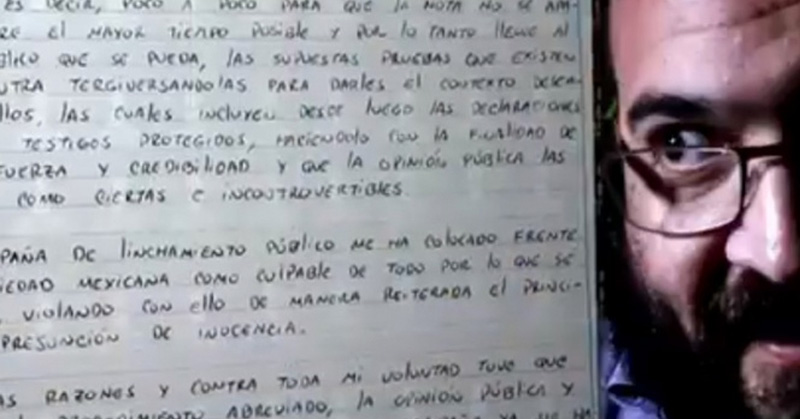 ES DECIR, POCO A POCO PARA QUE LA NOTA NO SE AM-
RE EL MAYOR TIEMPO POSIBLE Y POR LO TANTO LLEGUE AL
BLICO QUE SE PUEDA, LAS SUPUESTAS PRUEBAS QUE EXISTEN
NTRA TERGIVERSANDOLAS PARA DARLES EL CONTEXTO DESEA-
LLOS, LAS CUALES INCLUYEN DESDE LUEGO LAS DECLARACIONES
TESTIGOS PROTEGIDOS, HACIENDOLO CON LA FINALIDAD DE
FUERZA Y CREDIBILIDAD Y QUE LA OPINIÓN PÚBLICA LAS
COMO CIERTAS E INCONTROVERTIBLES.
PAÑA DE LINCHAMIENTO PÚBLICO ME HA COLOCADO FRENTE
IEDAD MEXICANA COMO CULPABLE DE TODO POR LO QUE SE
VIOLANDO CON ELLO DE MANERA REITERADA EL PRINCI-
PRESUNCIÓN DE INOCENCIA.
AS RAZONES Y CONTRA TODA MI VOLUNTAD TUVE QUE
PROCEDIMIENTO ABREVIADO, LA OPINIÓN PÚBLICA Y